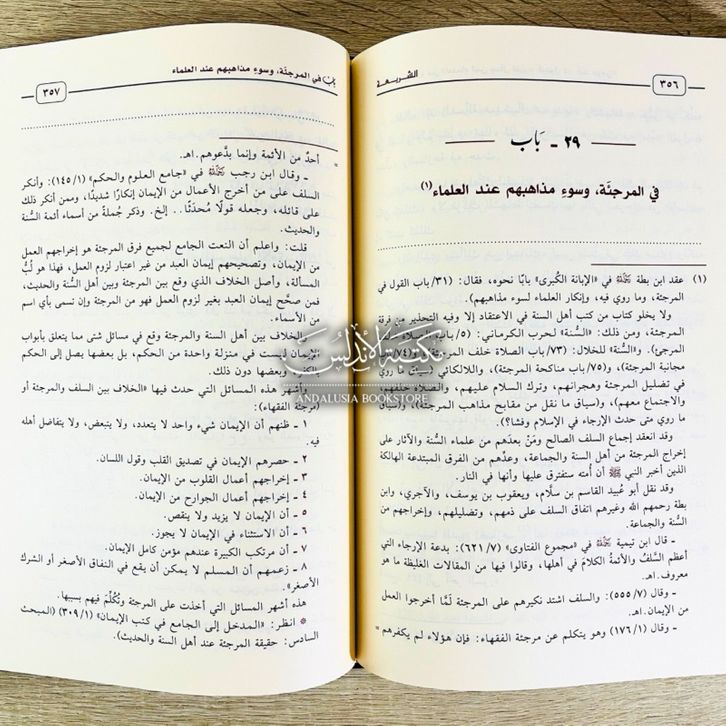 ٣٥٦
الشريعة
٢٩ ـ بَاب
في المرجئة، وسوء مذاهبهم عند العلماء(١)
(١) عقد ابن بطة ﷺ في «الإبانة الكُبرى» بابًا نحوه، فقال: (٣١/باب القول في
المرجئة، وما روي فيه، وإنكار العلماء لسوء مذاهبهم).
ولا يخلو كتاب من كتب أهل السنة في الاعتقاد إلا وفيه التحذير من فرقة
المرجئة، ومن ذلك: «السنة» لحرب الكرماني: (٥/باب
المرجئ). و«السنة» للخلال: (٧٣/باب الصلاة خلف المرجئة)،
مجانبة المرجئة)، و(٧٥/باب مناكحة المرجئة)، واللالكائي (سياق ما روي
في تضليل المرجئة وهجرانهم، وترك السلام عليهم، والصلاة خلفهم
والاجتماع معهم)، و(سياق ما نقل من مقابح مذاهب المرجئة)، و(سياق
ما روي متى حدث الإرجاء في الإسلام وفشا؟).
وقد انعقد إجماع السلف الصالح ومَنْ بعدَهم من علماء السُّنة والآثار على
إخراج المرجئة من أهل السنة والجماعة، وعدِّهم من الفرق المبتدعة الهالكة
الذين أخبر النبي ﷺ أن أُمته ستفترق عليها وأنها في النار.
وقد نقل أبو عُبيد القاسم بن سلَّام، ويعقوب بن يوسف، والآجري، وابن
بطة رحمهم الله وغيرهم اتفاق السلف على ذمهم، وتضليلهم، وإخراجهم من
السُّنة والجماعة.
ـ قال ابن تيمية في «مجموع الفتاوى» (٦٢١/٧): بدعة الإرجاء التي
أعظم السَّلفُ والأئمةُ الكلامَ في أهلها، وقالوا فيها من المقالات الغليظة ما هو
معروف.اهـ.
ـ وقال (٥٥٥/٧): والسلف اشتد نكيرهم على المرجئة لَمَّا أخرجوا العمل
من الإيمان.اهـ.
ـ وقال (١٧٦/١) وهو يتكلم عن مرجئة الفقهاء: فإن هؤلاء لم يكفرهم =
باب في المرجئة، وسوء مذاهبهم عند العلماء
٣٥٧
= أحدٌ من الأئمة وإنما بدَّعوهم.اهـ.
ـ وقال ابن رجب في «جامع العلوم والحكم» (١٤٥/١): وأنكر
السلف على من أخرج الأعمال من الإيمان إنكارًا شديدًا، وممن أنكر ذلك
على قائله، وجعله قولًا مُحدَثًا.. إلخ. وذكر جُملةً من أسماء أئمة السُّنة
والحديث.
قلت: واعلم أن النعت الجامع لجميع فرق المرجئة هو إخراجهم العمل
من الإيمان، وتصحيحهم إيمان العبد من غير اعتبار لزوم العمل، فهذا هو لُبُّ
المسألة، وأصل الخلاف الذي وقع بين المرجئة وبين أهل السُّنة والحديث،
فمن صحَّح إيمان العبد بغير لزوم العمل فهو من المرجئة وإن تسمى بأي اسم
من الأسماء.
الخلاف بين أهل السُّنة والمرجئة وقع في مسائل شتى مما يتعلق بأبواب
الإيمان ليست في منزلة واحدة من الحكم، بل بعضها يصل إلى الحكم
وبعضها دون ذلك.
وأشهر هذه المسائل التي حدث فيها «الخلاف بين السلف والمرجئة أو
(مرجئة الفقهاء):
١ ـ ظنهم أن الإيمان شيء واحد لا يتعدد، ولا يتبعض، ولا يتفاضل أهله
فيه.
٢ ـ حصرهم الإيمان في تصديق القلب وقول اللسان.
٣ ـ إخراجهم أعمال القلوب من الإيمان.
٤ ـ إخراجهم أعمال الجوارح من الإيمان.
٥ ـ أن الإيمان لا يزيد ولا ينقص.
٦ ـ أن الاستثناء في الإيمان لا يجوز.
٧ ـ أن مرتكب الكبيرة عندهم مؤمن كامل الإيمان.
٨ ـ زعمهم أن المسلم لا يمكن أن يقع في النفاق الأصغر أو الشرك
الأصغر».
هذه أشهر المسائل التي أخذت على المرجئة وتُكُلِّمَ فيهم بسببها.
* انظر: «المدخل إلى الجامع في كتب الإيمان» (٣٠٩/١) (المبحث
السادس: حقيقة المرجئة عند أهل السنة والحديث).
مكتبة الأندلس
ANDALUSIA BOOKSTORE